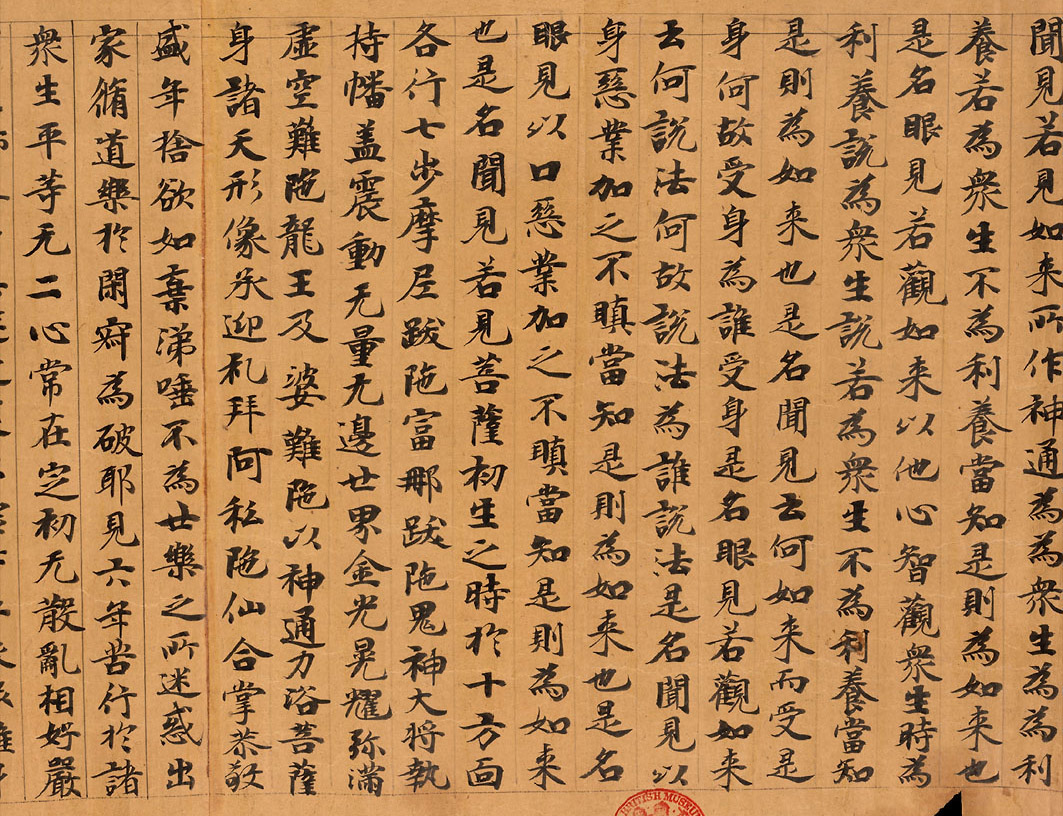 聞見若見如来所作神通為為衆生為為利
養若為衆生不為利養當知是則為如来也
是名眼見若觀如来以他心智觀衆生時為
利養說為衆生說若為衆生不為利養當知
是則為如来也是名聞見云何如来而受是
身何故受身為誰受身是名眼見若觀如来
云何說法何故說法為誰說法是名聞見以
身惡業加之不瞋當知是則為如来也是名
眼見以口惡業加之不瞋當知是則為如来
也是名聞見若見菩薩初生之時於十方面
各行七步摩尼跋陁富那跋陁鬼神大將執
持幡盖震動无量无邊世界金光晃耀弥滿
虛空難陁龍王及婆難陁以神通力浴菩薩
身諸天形像承迎礼拜阿私陁仙合掌恭敬
盛年捨欲如棄涕唾不為世樂之所迷惑出
家脩道樂於閑寂為破耶見六年苦行於諸
衆生平等无二心常在定初无散亂相好嚴
BRITISH MUSEUM